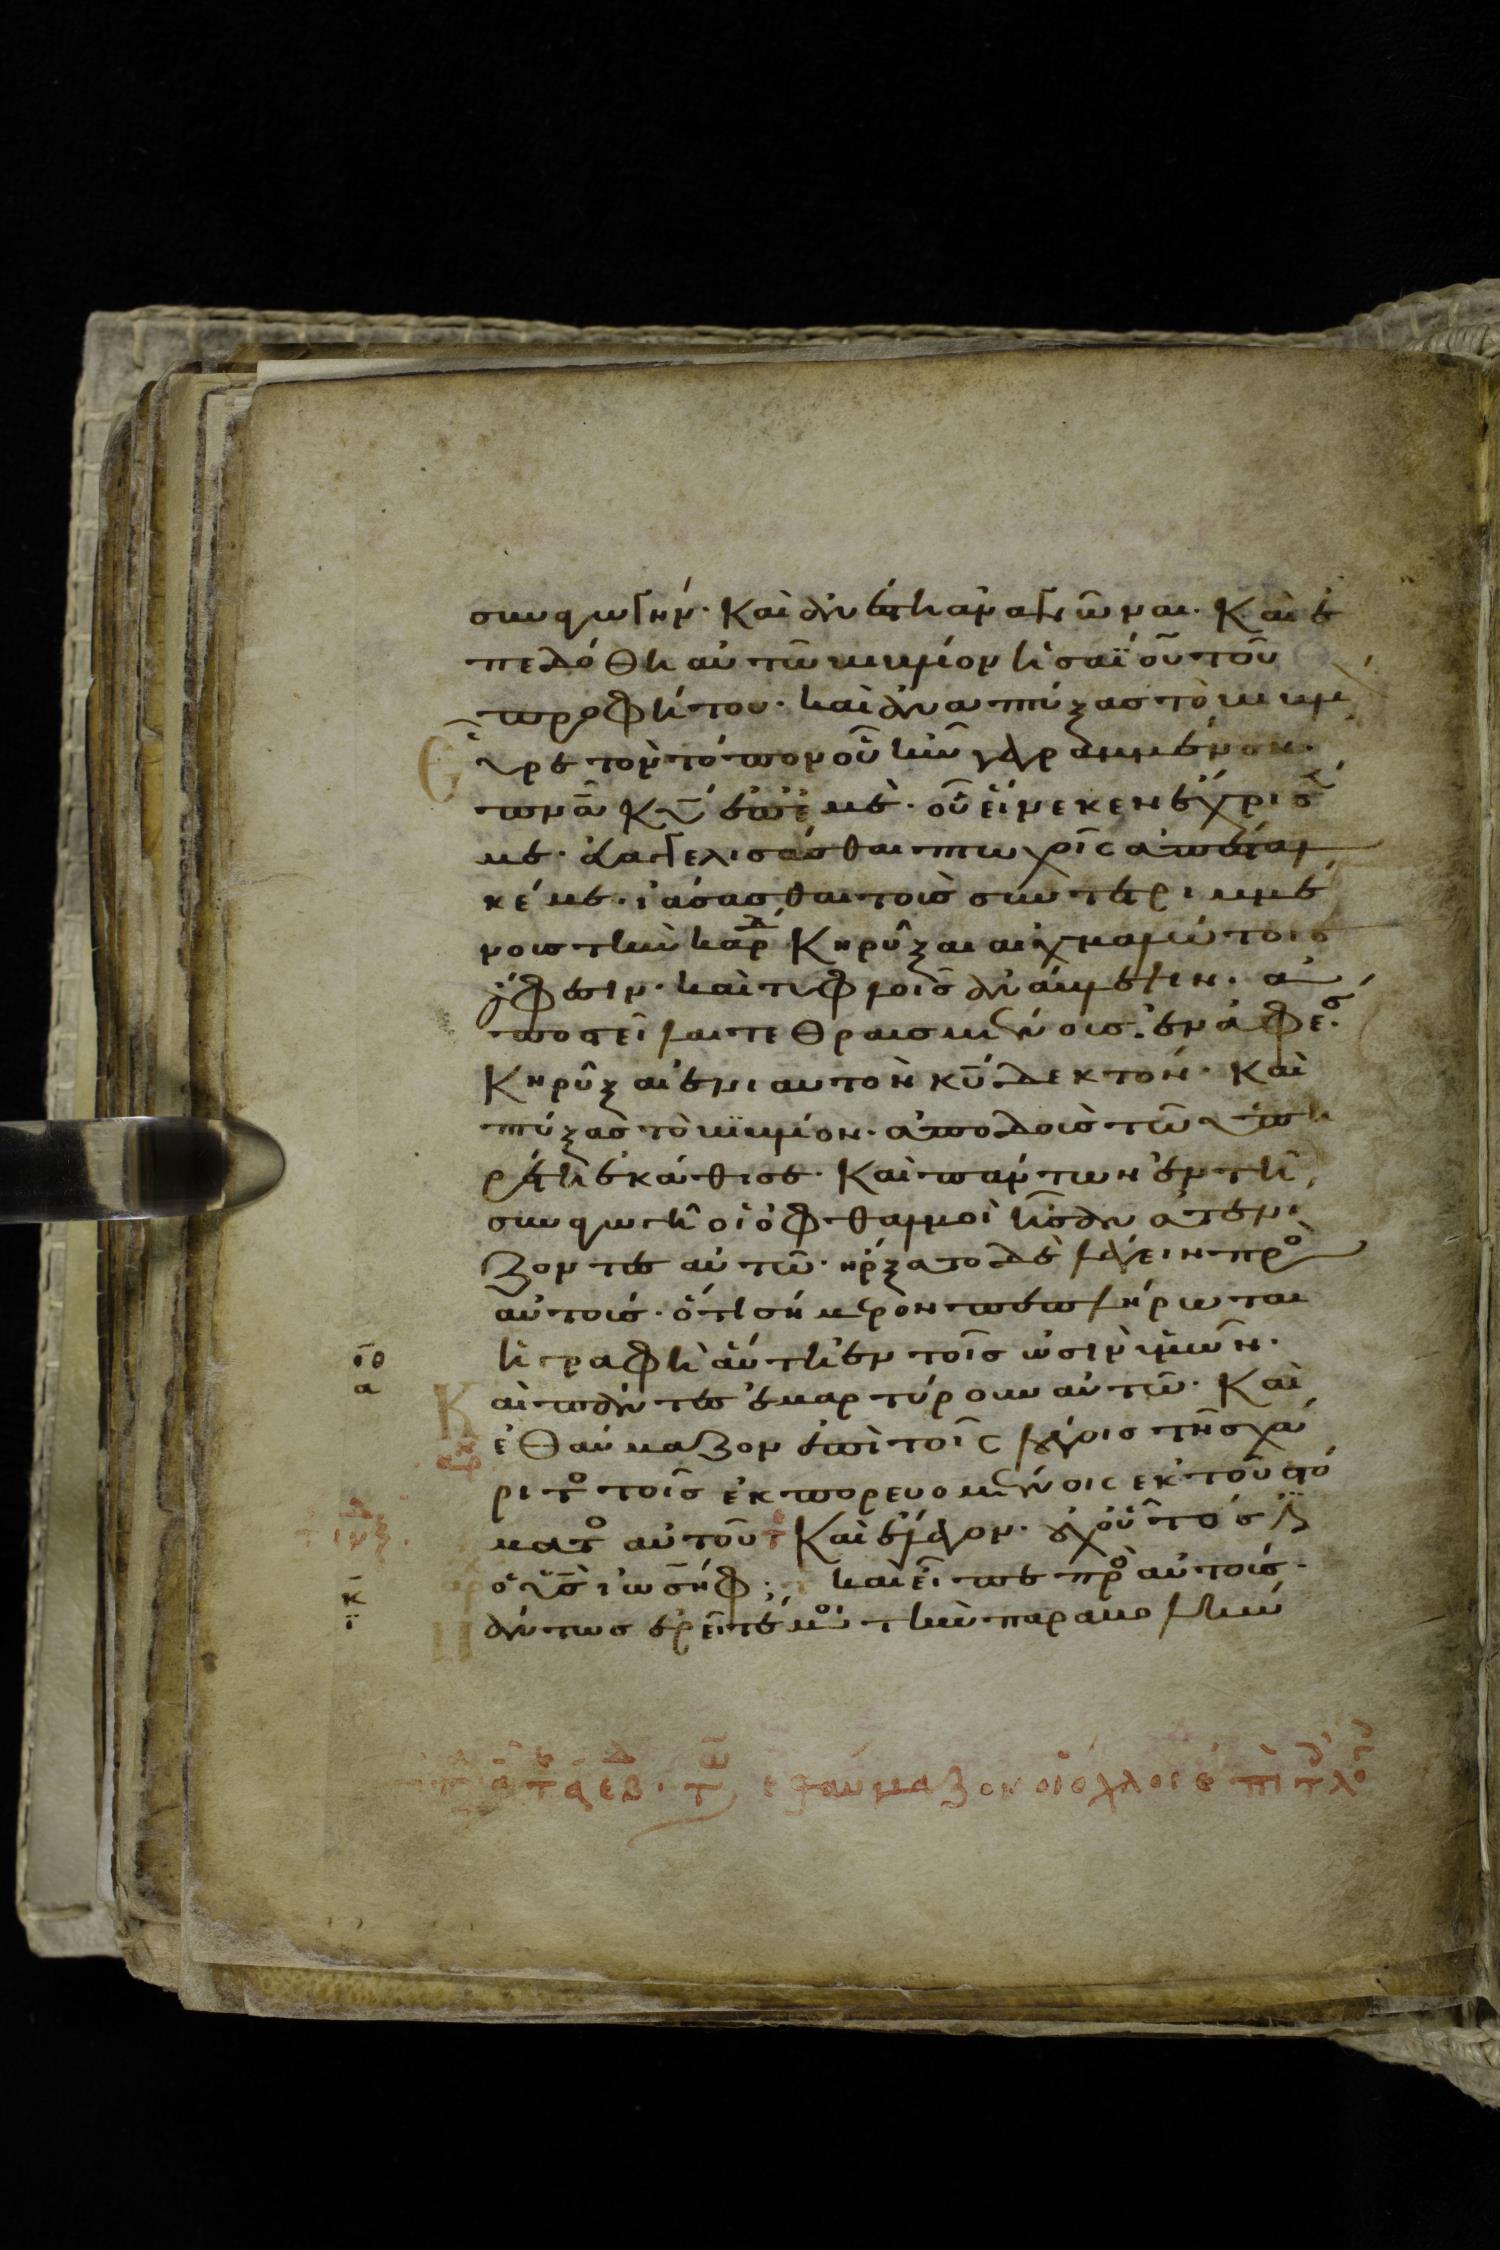 συναγωγήν· Καὶ ἀνέστη ἀναγνῶναι· Καὶ ἐ
πεδόθη αὐτῶ βιβλίον ἡσαΐου τοῦ
προφήτου· καὶ ἀναπτύξας τὸ βιβλ
εὗρε τὸν τόπον οὗ ἦν γεγραμμένον·
πνᾶ κῡ ἐπ' ἐμέ· οὗ εἵνεκεν ἔχρισέ
με· εὐαγγελίσασθαι πτωχοῖς ἀπέσταλ
κέ με· ἰάσασθαι τοὺς συντετριμμέ
νους τὴν καρδ Κηρῦξαι αἰχμαλώτοις
ἄφεσιν· καὶ τυφλοῖς ἀνάβλεψιν· ἀ
ποστεῖλαι τεθραυσμένους ἐν ἀφέσ
Κηρῦξαι ἐνιαυτὸν κῡ δεκτόν· Καὶ
πτύξας τὸ βιβλίον· ἀποδοὺς τῶ ὑπη
ρέτη ἐκάθισε· Καὶ πάντων ἐν τῆ
συναγωγῆ οἱ ὀφθαλμοὶ ἦσαν ἀτενί
ζοντες αὐτῶ· ἤρξατο δὲ λέγειν πρὸ
αὐτούς· ὅτι σήμερον πεπλήρωται
ἡ γραφὴ αὕτη ἐν τοῖς ὠσὶν ὑμῶν·
ῑθ
α
Καὶ πάντες ἐμαρτύρουν αὐτῶ· Καὶ
ἐθαύμαζον ἐπὶ τοῖς λόγοις τῆς χά
ριτο τοῖς ἐκπορευομένοις ἐκ τοῦ στό
ματο αὐτοῦ Καὶ ἔλεγον· οὐχ οὗτός ἐ
ὁ ῡς ἰωσήφ; καὶ εἶπε πρὸ αὐτούς·
κ̄
ϊ
Πάντως ἐρεῖτέ μοι τὴν παραβολὴν
ἐθαύμαζον οἱ ὄχλοι ἐπὶ